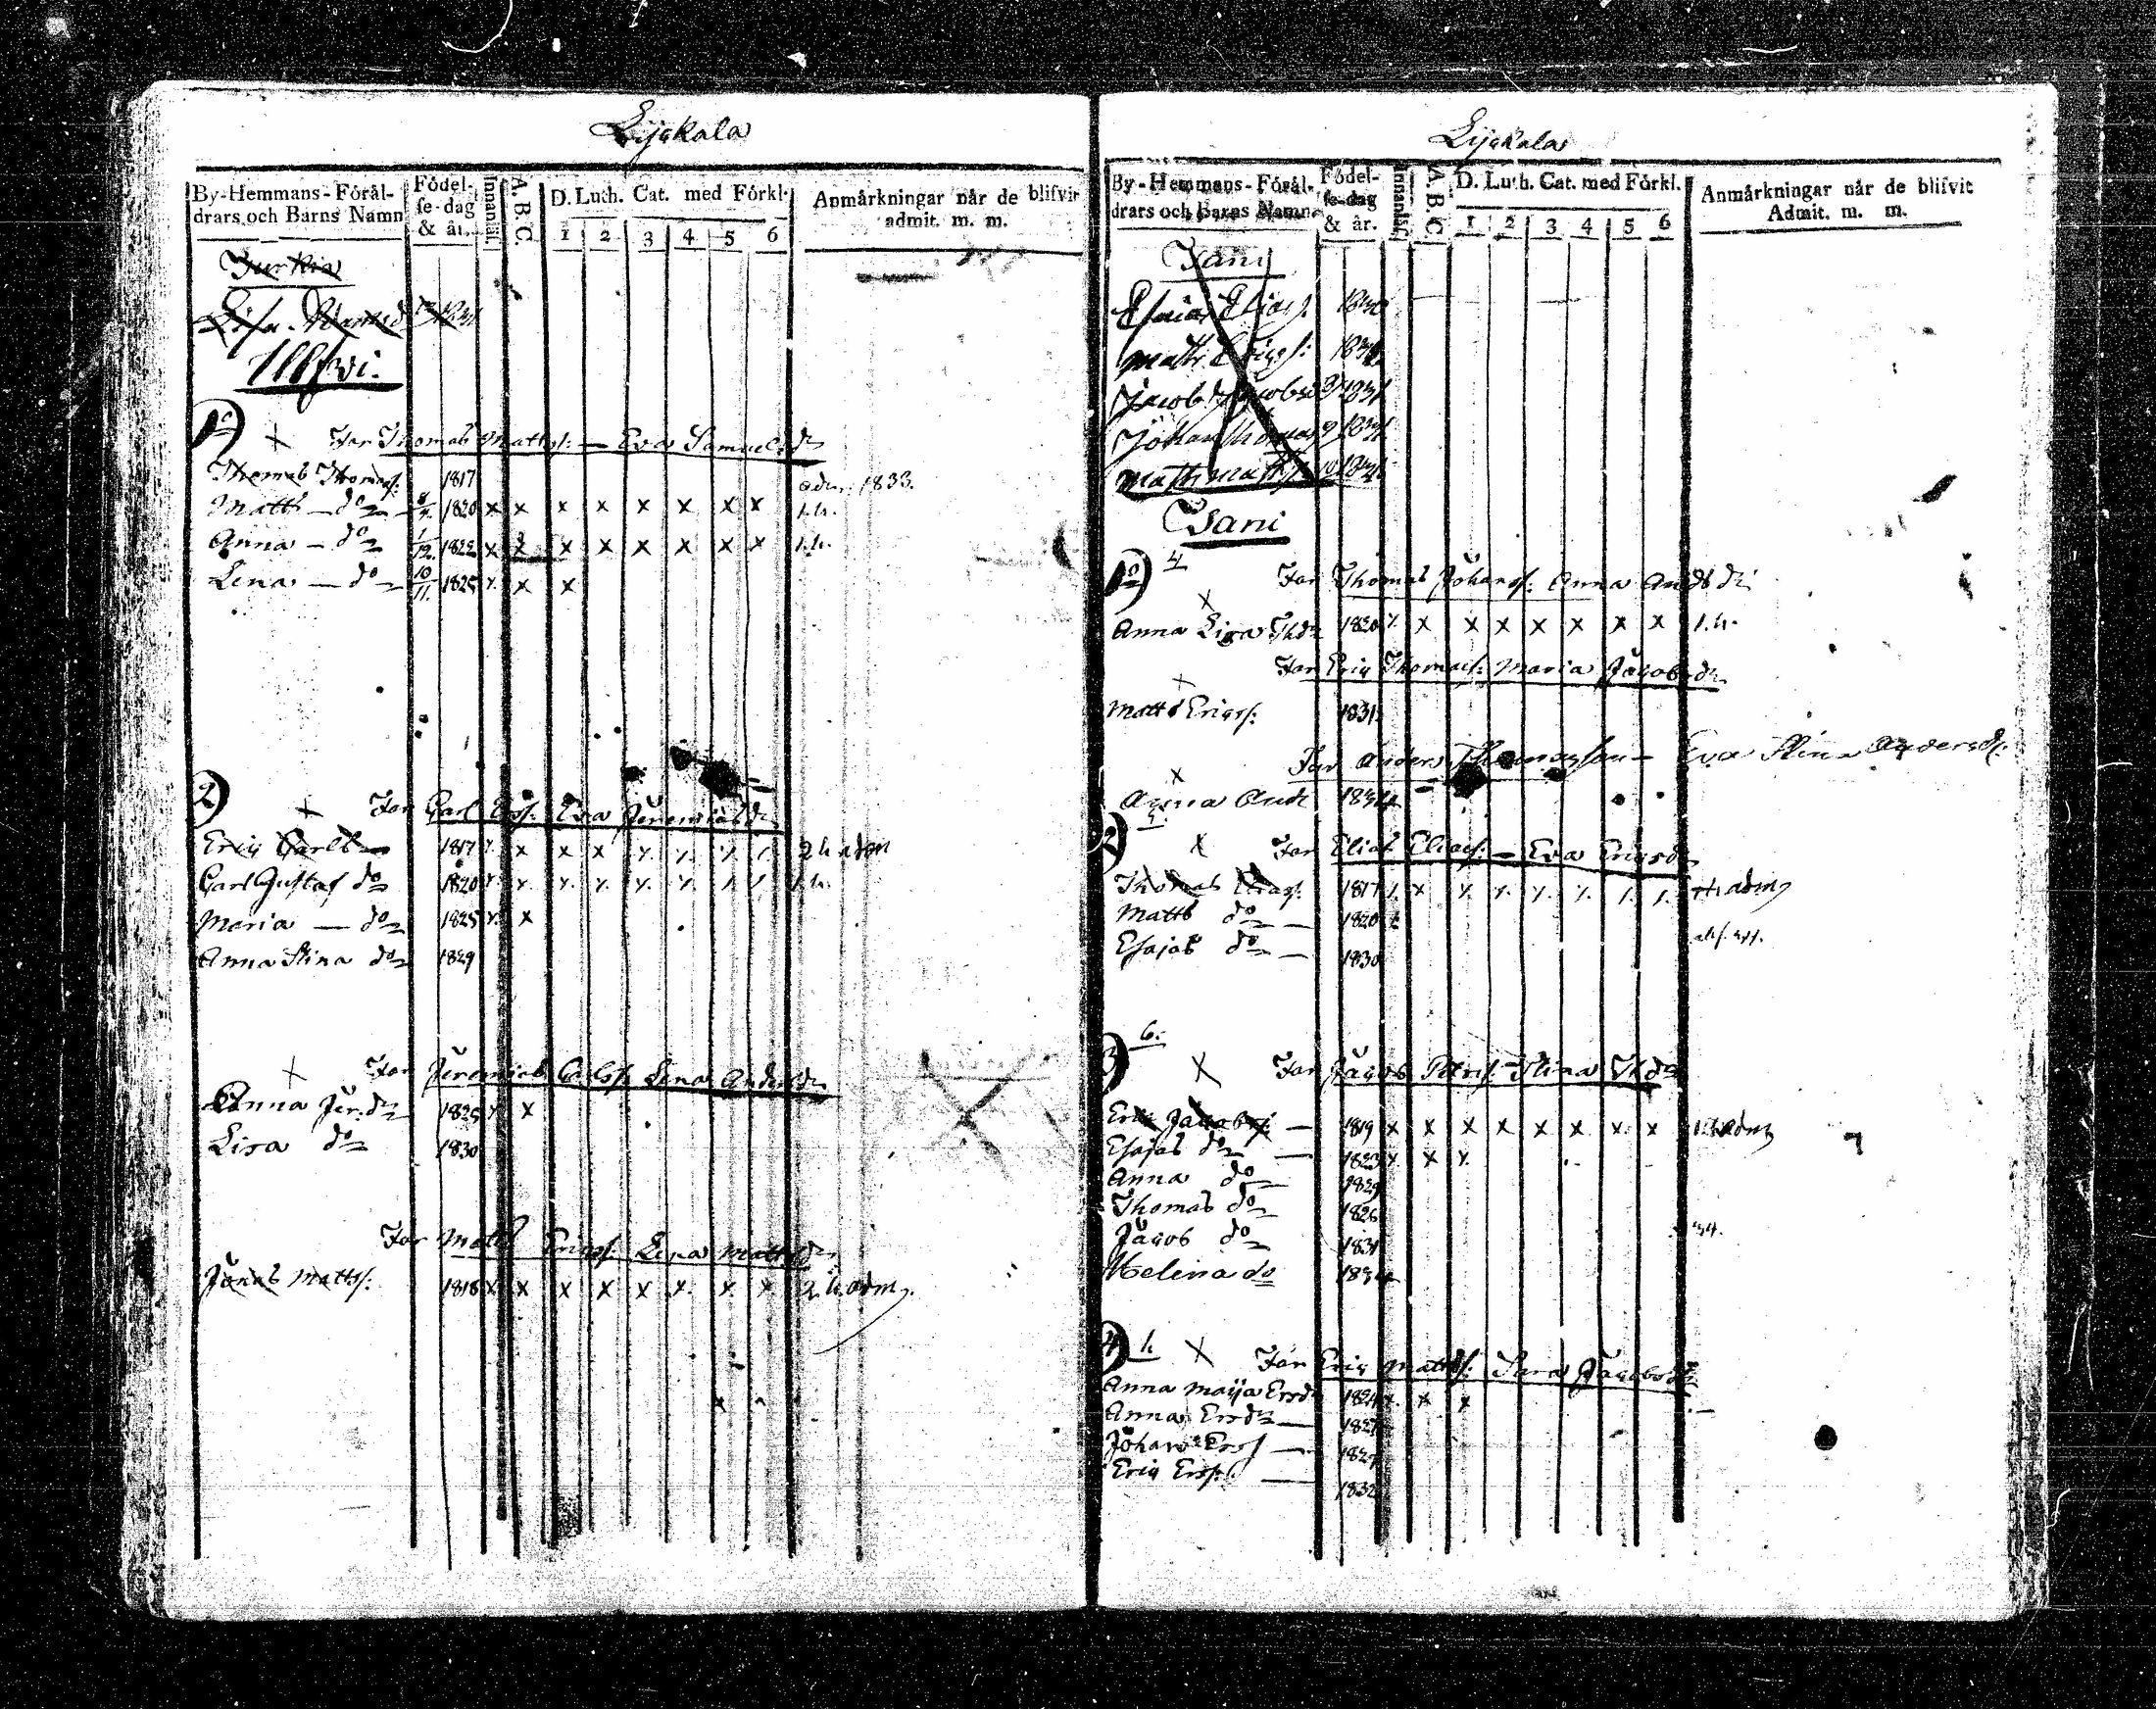 Lijckala
By-Hemmans-Föräl-
drars och Barns Namn
Födel-
se-dag
& år.
Innanläs.
A. B. C.
D. Luth. Cat. med Förkl.
1 2 3 4 5 6
Anmärkningar når de blifvit
admit. m. m.
Jurkia
Lisa
1)
Far Thomas Matts: — Eva Samuelsdr
Thomas Thomas: 1817 adm. 1833.
Matts — do 1820 x x x x x x x x 1.h.
Anna — do 1/12. 1822 x x x x x x x x 1.h.
Lena — do 10/11. 1825 x x x
2)
Far Carl Ers: Eva Jeremiasdr
Eriq Carls — 1817 x x x x x x x x 2 h adm
Carl Gustaf do 1820 x x x x x x x x 1.h.
Maria — do 1825 x x
Anna Stina do 1829
Far Jeremias Carlss. Lena Andersdr
Anna Jer:dr 1825 x x
Lisa do 1830
Far Matts Eriqss: Lisa Mattsdr
Jonas Mattss: 1818 x x x x x x x x 2 h. adm.
Lijckala
By-Hemmans-Föräl-
drars och Barns Namn
Födel-
se-dag
& år.
Innanläs.
A. B. C.
D. Luth. Cat. med Förkl.
1 2 3 4 5 6
Anmärkningar når de blifvit
Admit. m. m.
Jani
Esaias Elias:
Math: Eriqs:
Jacob Jacobs 1831
Johan Thomas 1831
Math Maths
Jani
1) 4
Far Thomas Johanss: Anna Andsdr
Anna Lisa Thdr 1820 x x x x x x x x 1.h.
Far Eriq Thomass: Maria Jacobsdr
Matts Eriqss: 1831
Far Anders Thomasson — Eva Stina Andersdr.
Anna Andr 1834
2) 5.
Far Elias Eliass: — Eva Eriqsdr
Thomas Eliass: 1817 x x x x x x x x adm
Matts do — 1820 x
Esajas do — 1830
3) 6.
Far Jacob Petris: Stina Thdr
Eriq Jacobs: — 1819 x x x x x x x x 1.h adm
Esajas do — 1823 x x x
Anna do 1829
Thomas do 1825
Jacob do 1831 34.
Helena do 1834
4) 1.
Far Eriq Mattss: Sara Jacobsdr
Anna Maija Ersdr 1824 x x x
Anna Ersdr — 1827
Johan Erss — 1829
Eriq Erss: — 1832